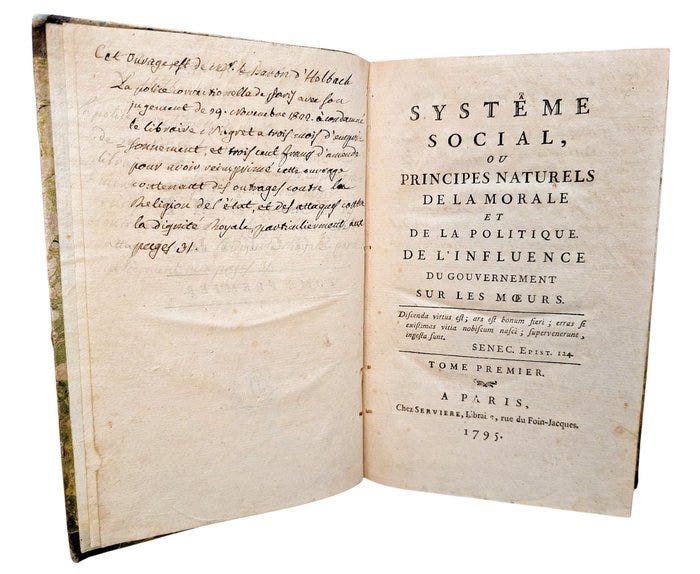 Cet ouvrage est de mr. le Baron d'Holbach
La police correctionnelle de Paris avec son
jugement de 29. Novembre 1822. a condamné
le libraire a trois mois d'empri-
sonnement, et trois cent francs d'amande
pour avoir réimprimé cette ouvrage
contenant des outrages contre la
Religion de l'état, et des attaques contre
la dignité Royale, particulierment
pages 31.
SYSTÊME
SOCIAL,
OU
PRINCIPES NATURELS
DE LA MORALE
ET
DE LA POLITIQUE.
DE L'INFLUENCE
DU GOUVERNEMENT
SUR LES MŒURS.
Discenda virtus eſt; ars eſt bonum fieri; erras ſi
exiſtimas vitia nobiſcum naſci; ſupervenerunt,
ingeſta ſunt.
SENEC. EPIST. 124.
TOME PREMIER.
A PARIS,
Chez SERVIERE, Libraire, rue du Foin-Jacques.
1795.